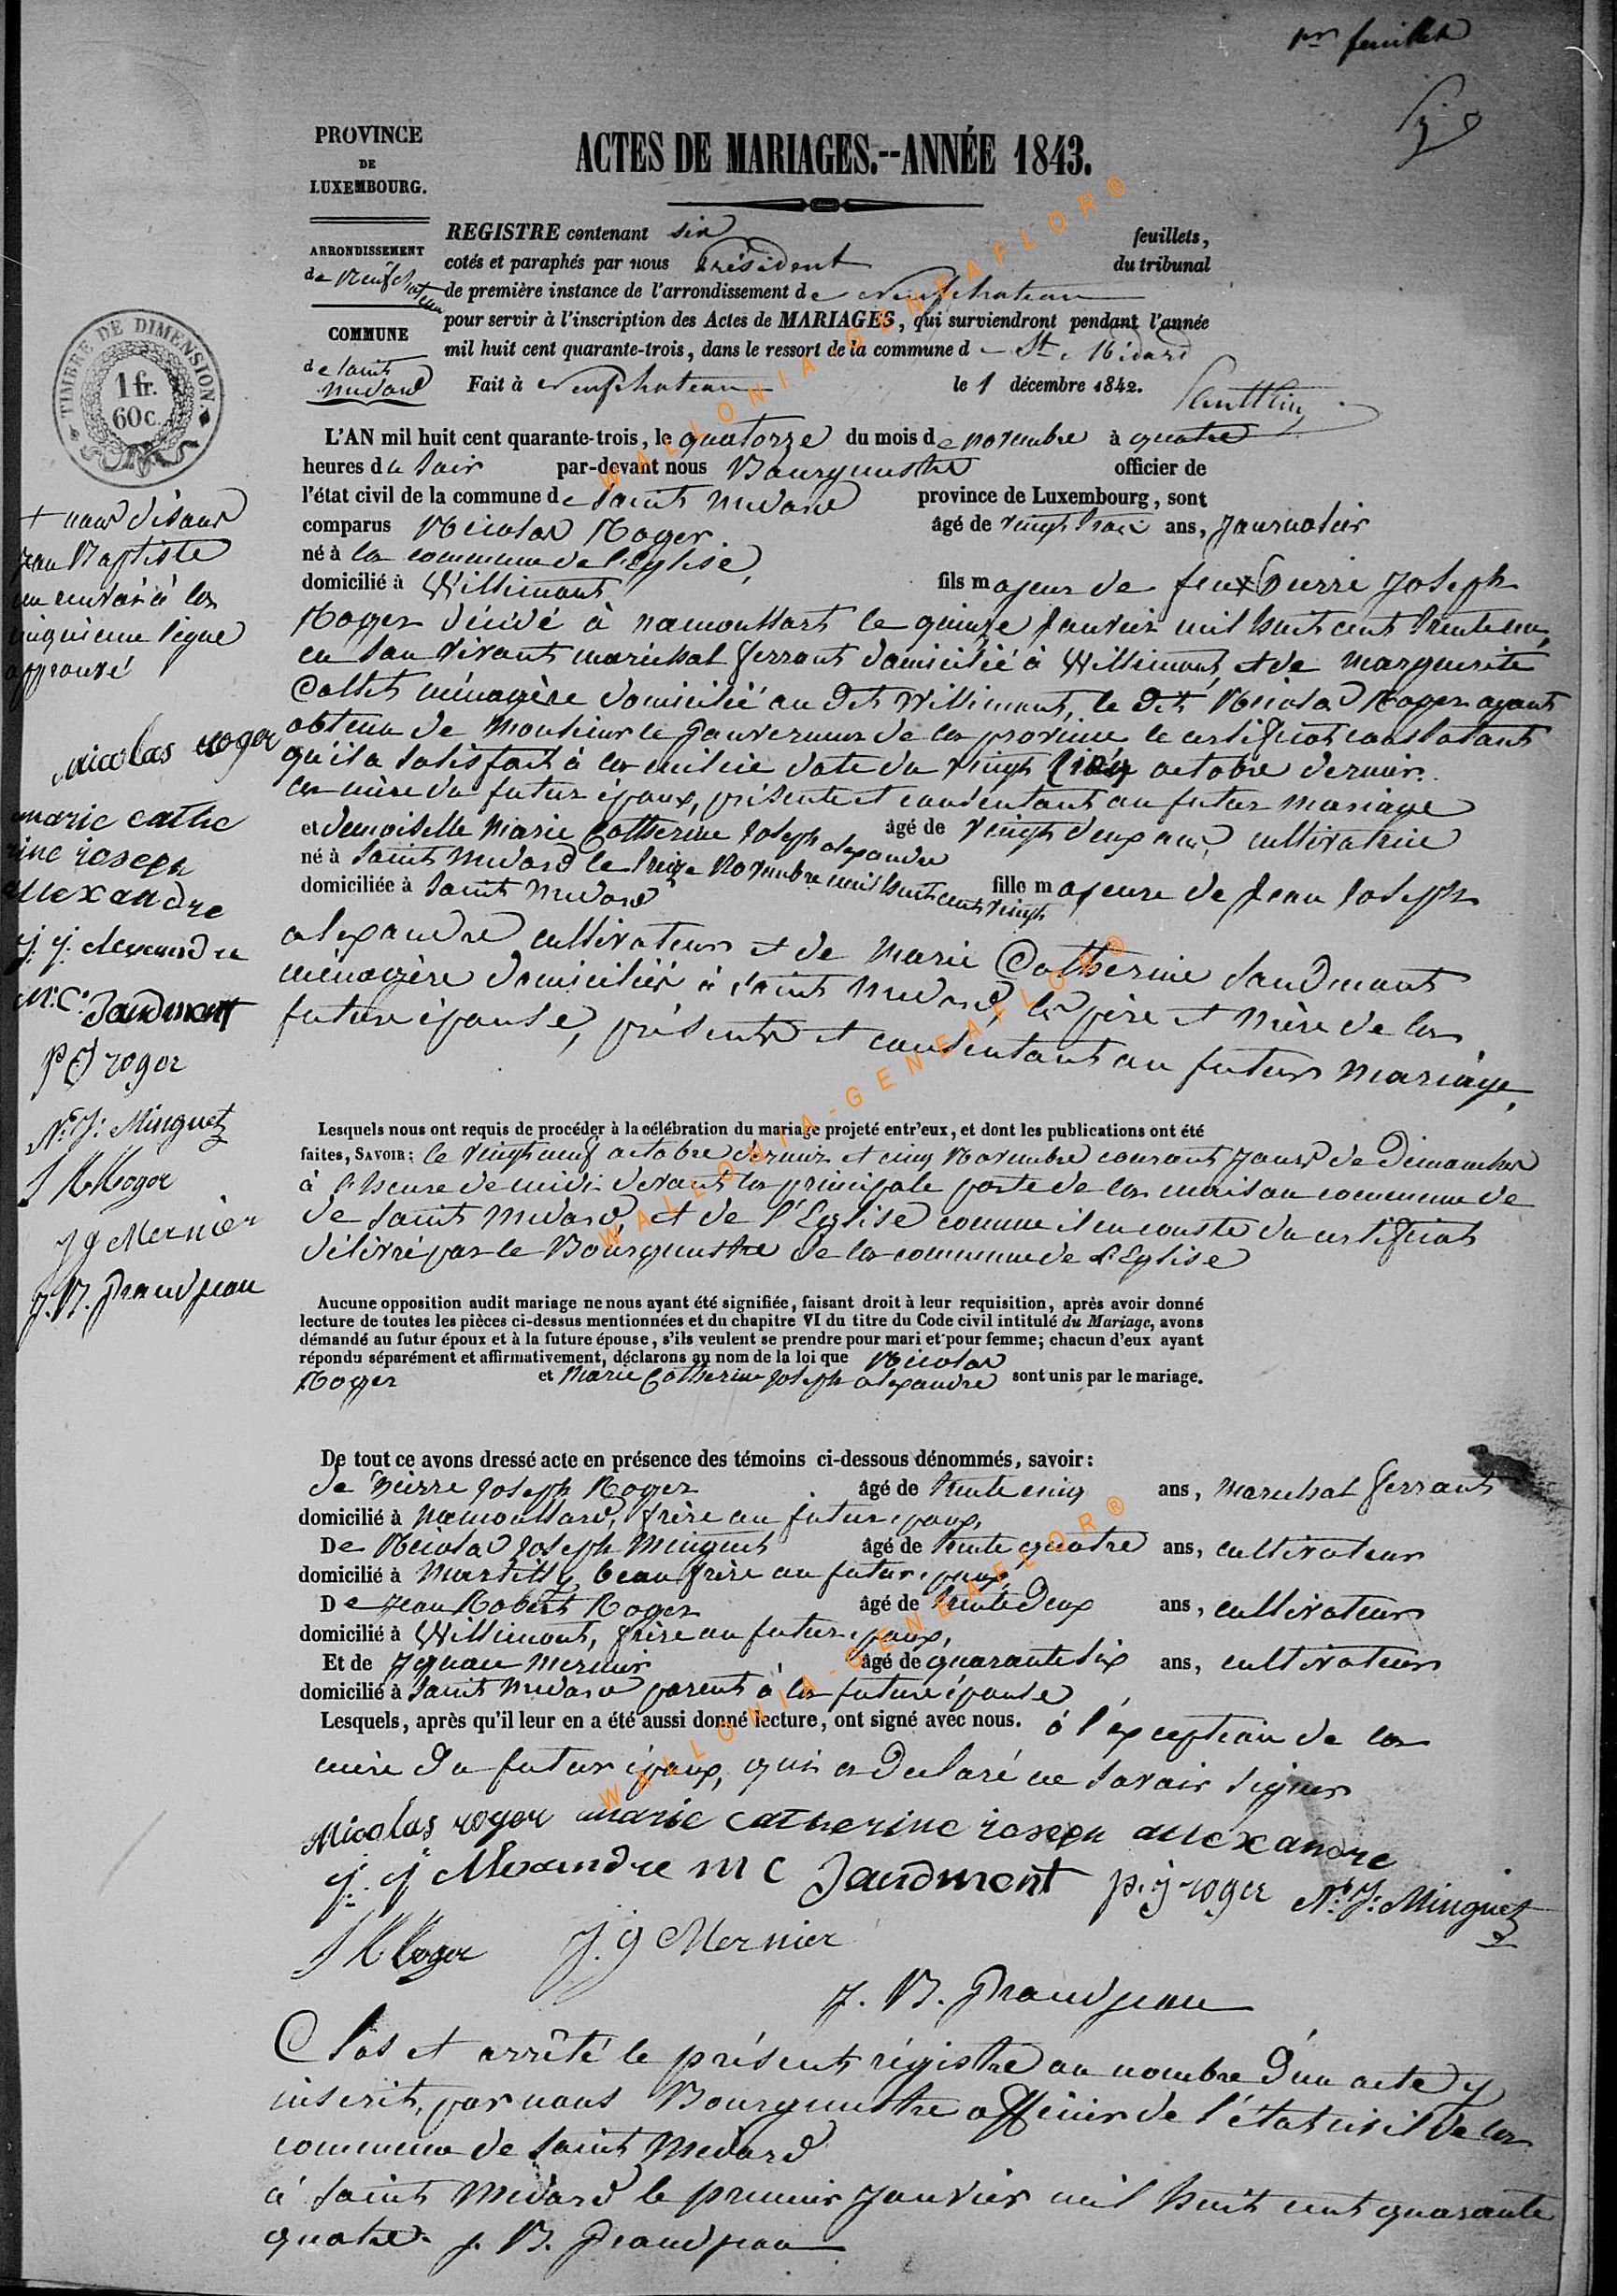 1er feuillet
PROVINCE
DE
LUXEMBOURG.
ACTES DE MARIAGES.--ANNÉE 1843.
ARRONDISSEMENT
de Neufchateau
COMMUNE
de Saint
Medard
REGISTRE contenant six feuillets,
cotés et paraphés par nous Président du tribunal
de première instance de l'arrondissement de Neufchateau
pour servir à l'inscription des Actes de MARIAGES, qui surviendront pendant l'année
mil huit cent quarante-trois, dans le ressort de la commune d St Médard
Fait à Neufchateau le 1 décembre 1842.
TIMBRE DE DIMENSION.
1 fr.
60 c.
L'AN mil huit cent quarante-trois, le quatorze du mois de novembre à quatre
heures du soir par-devant nous Bourgmestre officier de
l'état civil de la commune de Saint Medard province de Luxembourg, sont
comparus Nicolas Roger âgé de vingt trois ans, journalier
né à la commune de l'Eglise,
domicilié à Willimont fils majeur de feu + Pierre Joseph
Roger décédé à namoussart le quinze janvier mil huit cent trente un,
en son vivant marichal ferrant domicilié à Willimont, et de marguerite
Collet ménagère domicilié au dit Willimont, le dit Nicolas Roger ayant
obtenu de Monsieur le gouverneur de la province le certificat constatant
qu'il a satisfait à la milice daté du vingt cinq octobre dernier.
la mère du futur époux, présente et consentant au futur mariage
et demoiselle Marie Catherine Joseph alexandre âgé de vingt deux ans, cultivatrice
né à Saint Medard le treize Novembre mil huit cent vingt
domiciliée à Saint Medard fille majeure de Jean Joseph
alexandre cultivateur et de Marie Catherine Jaudmont
ménagère domiciliés à Saint Medard, les père et mère de la
future épouse, présents et consentant au futur Mariage,
Lesquels nous ont requis de procéder à la célébration du mariage projeté entr'eux, et dont les publications ont été
faites, SAVOIR: le vingt neuf octobre dernier et cinq Novembre courant jours de Dimanches
à l'heure de midi devant la principale porte de la maison commune de
de Saint Medard, et de l'Eglise comme il en conste du certificat
délivré par le Bourgmestre de la commune de l'Eglise
Aucune opposition audit mariage ne nous ayant été signifiée, faisant droit à leur requisition, après avoir donné
lecture de toutes les pièces ci-dessus mentionnées et du chapitre VI du titre du Code civil intitulé du Mariage, avons
démandé au futur époux et à la future épouse, s'ils veulent se prendre pour mari et pour femme; chacun d'eux ayant
répondu séparément et affirmativement, déclarons au nom de la loi que Nicolas
Roger et Marie Catherine Joseph alexandre sont unis par le mariage.
De tout ce avons dressé acte en présence des témoins ci-dessous dénommés, savoir:
de Pierre Joseph Roger âgé de trente cinq ans, marechal ferrant
domicilié à Namoussard, frère au futur époux,
De Nicolas Joseph Minguet âgé de trente quatre ans, cultivateur
domicilié à Martilly beau frère au futur époux,
De Jean Robert Roger âgé de trente deux ans, cultivateur
domicilié à Willimont, frère au futur époux,
Et de Ignace Mernier âgé de quarante six ans, cultivateur
domicilié à Saint Medard parent à la future épouse
Lesquels, après qu'il leur en a été aussi donné lecture, ont signé avec nous. à l'exception de la
mère du futur époux, qui a déclaré ne savoir signer
Nicolas roger marie catherine joseph allexandre
j. j Alexandre m c Jaudmont p. j roger N. J: Minguet
J R Roger J. g Mernier
J. B. Grandjean
Clos et arrêté le présent régistre au nombre d'un acte y
inscrit, par nous Bourgmestre officier de l'état civil de la
commune de Saint Medard
à Saint Médard le premier janvier mil huit cent quarante
quatre. J. B. Grandjean
+ nous disons
jean Baptiste
un renvoi à la
cinquieme ligne
approuvé
nicolas roger
marie cathe
rine joseph
allexandre
j. j. alexandre
M. C. Jaudmont
P J roger
N. J: Minguet
J R Roger
J g Mernier
J. B. Grandjean
WALLONIA-GENEAFLOR®
WALLONIA-GENEAFLOR®
WALLONIA-GENEAFLOR®